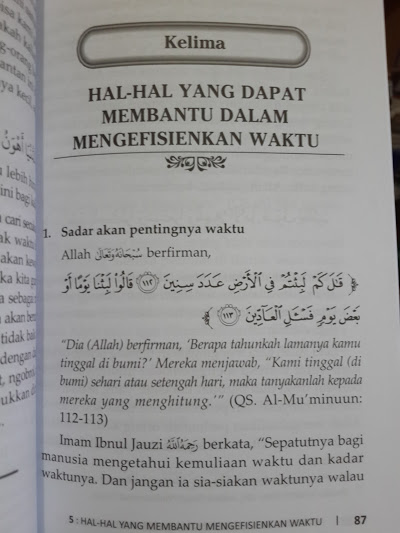 Kelima
HAL-HAL YANG DAPAT
MEMBANTU DALAM
MENGEFISIENKAN WAKTU
1. Sadar akan pentingnya waktu
Allah سُبْحَانَهُ وَتَعَالَى berfirman,
﴿ قَـٰلَ كَمْ لَبِثْتُمْ فِي الْأَرْضِ عَدَدَ سِنِينَ ١١٢ قَالُوا لَبِثْنَا يَوْمًا أَوْ
بَعْضَ يَوْمٍ فَسْـَٔلِ الْعَادِّينَ ١١٣ ﴾
"Dia (Allah) berfirman, 'Berapa tahunkah lamanya kamu
tinggal di bumi?' Mereka menjawab, "Kami tinggal (di
bumi) sehari atau setengah hari, maka tanyakanlah kepada
mereka yang menghitung.'" (QS. Al-Mu'minuun:
112-113)
Imam Ibnul Jauzi رَحِمَهُ اللهُ berkata, "Sepatutnya bagi
manusia mengetahui kemuliaan waktu dan kadar
waktunya. Dan jangan ia sia-siakan waktunya walau
5 : HAL-HAL YANG MEMBANTU MENGEFISIENKAN WAKTU | 87